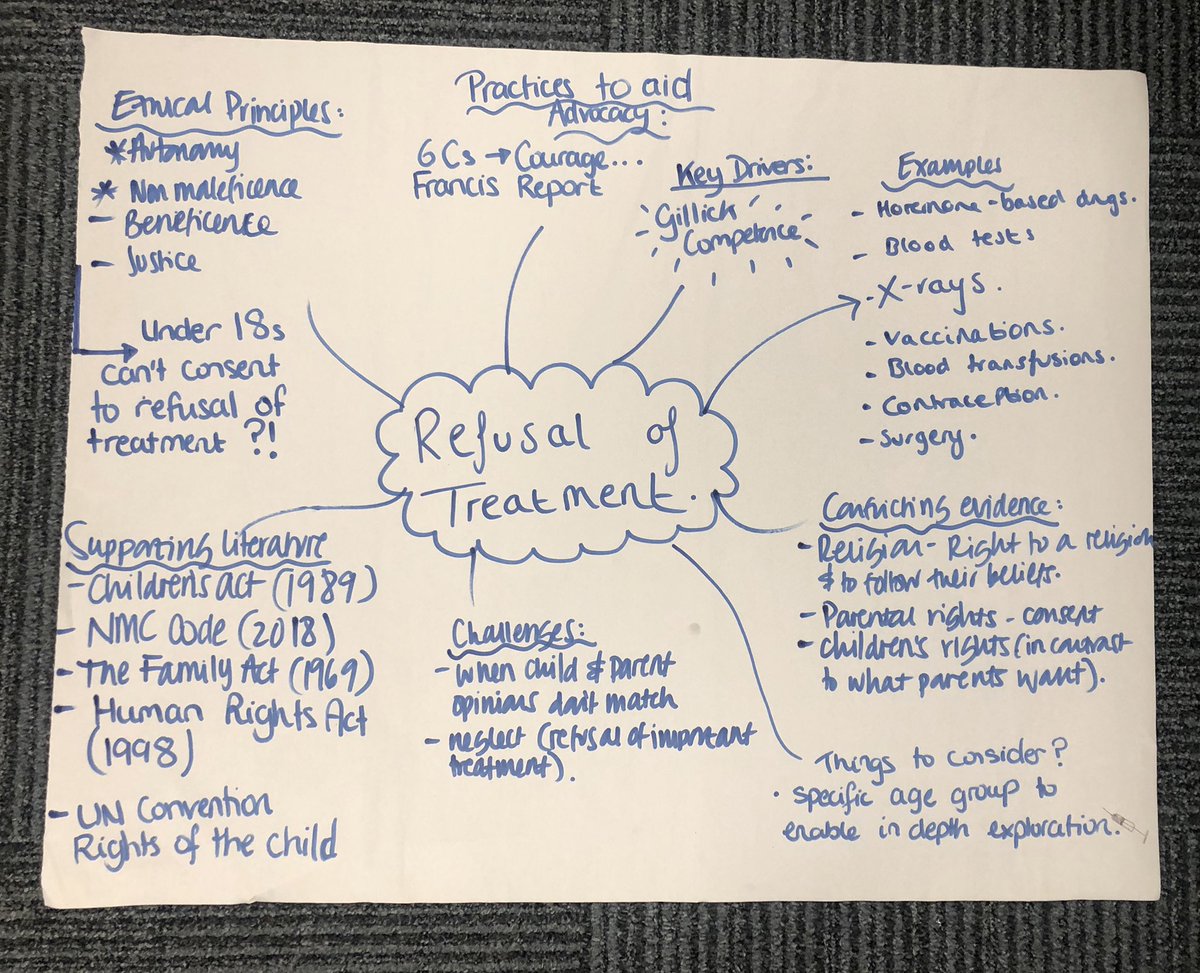 Ethical Principles:
* Autonomy
* Non maleficence
- Beneficence
- Justice
under 18s
can't consent
to refusal of
treatment ?!
Practices to aid
Advocacy:
6Cs → Courage...
Francis Report
Key Drivers:
Gillick
Competence
Examples
- Horemone-based drugs.
- Blood tests
- X-rays.
- Vaccinations.
- Blood transfusions.
• Contraception.
- Surgery.
Refusal of
Treatment.
Supporting literature
- Children's act (1989)
- NMC Code (2018)
- The Family Act (1969)
- Human Rights Act
(1998)
- UN Convention
Rights of the child
Challenges:
- when child & parent
opinions don't match
- neglect (refusal of important
treatment).
Conflicting evidence:
- Religion - Right to a religion
& to follow their beliefs.
- Parental rights - consent
- children's rights (in contrast
to what parents want).
Things to consider?
• specific age group to
enable in depth exploration.